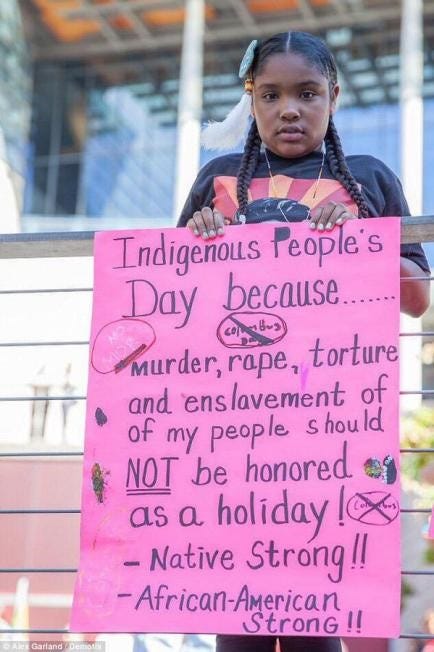 Indigenous People's
Day because.......
Columbus
Day
NO
Murder, rape, torture
and enslavement of
of my people should
NOT be honored
as a holiday!
- Native Strong!!
- African-American
Strong!!
© Alex Garland / Demotix